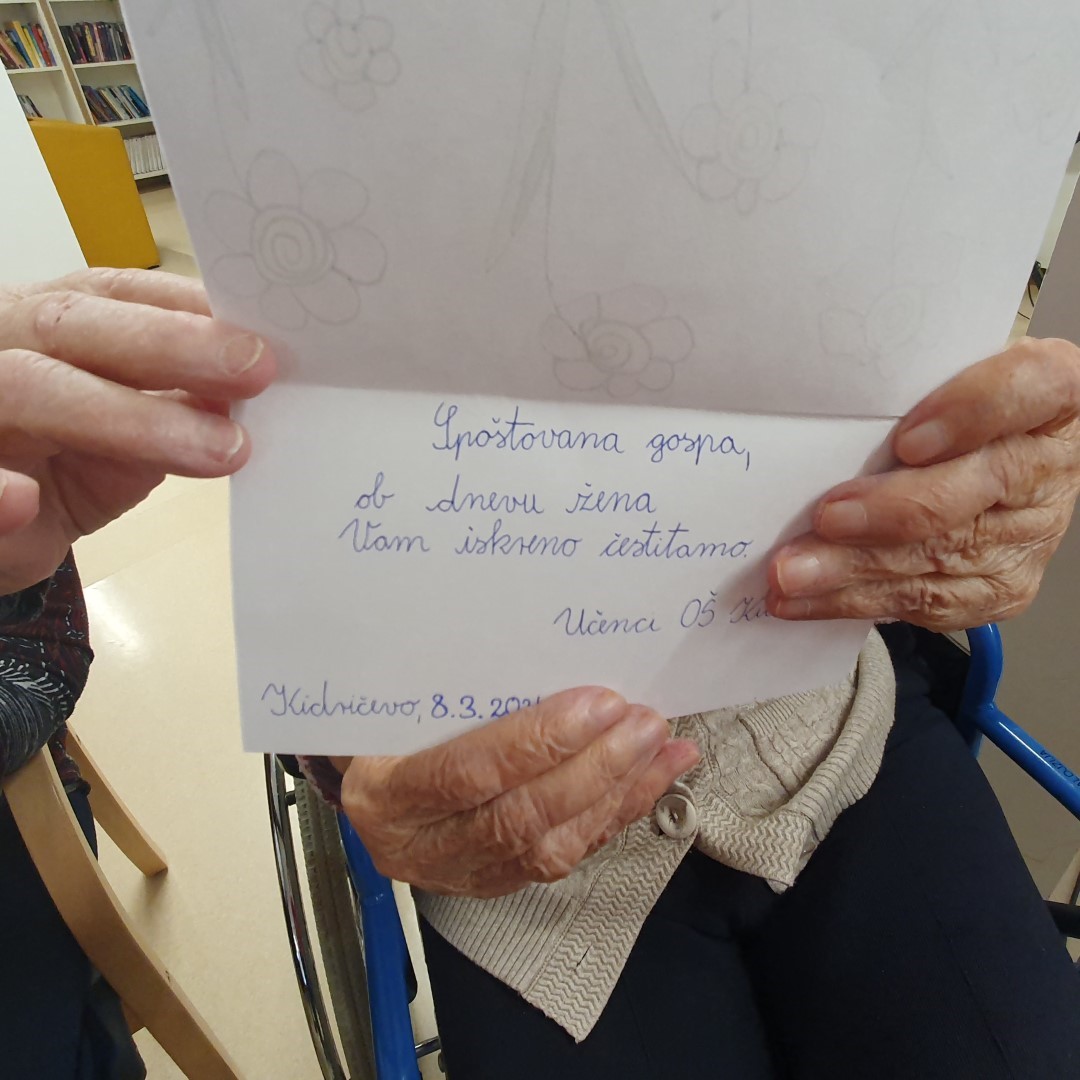 Spoštovana gospa,
ob dnevu žena
Vam iskreno čestitamo.
Učenci OŠ
Kidričevo, 8.3.